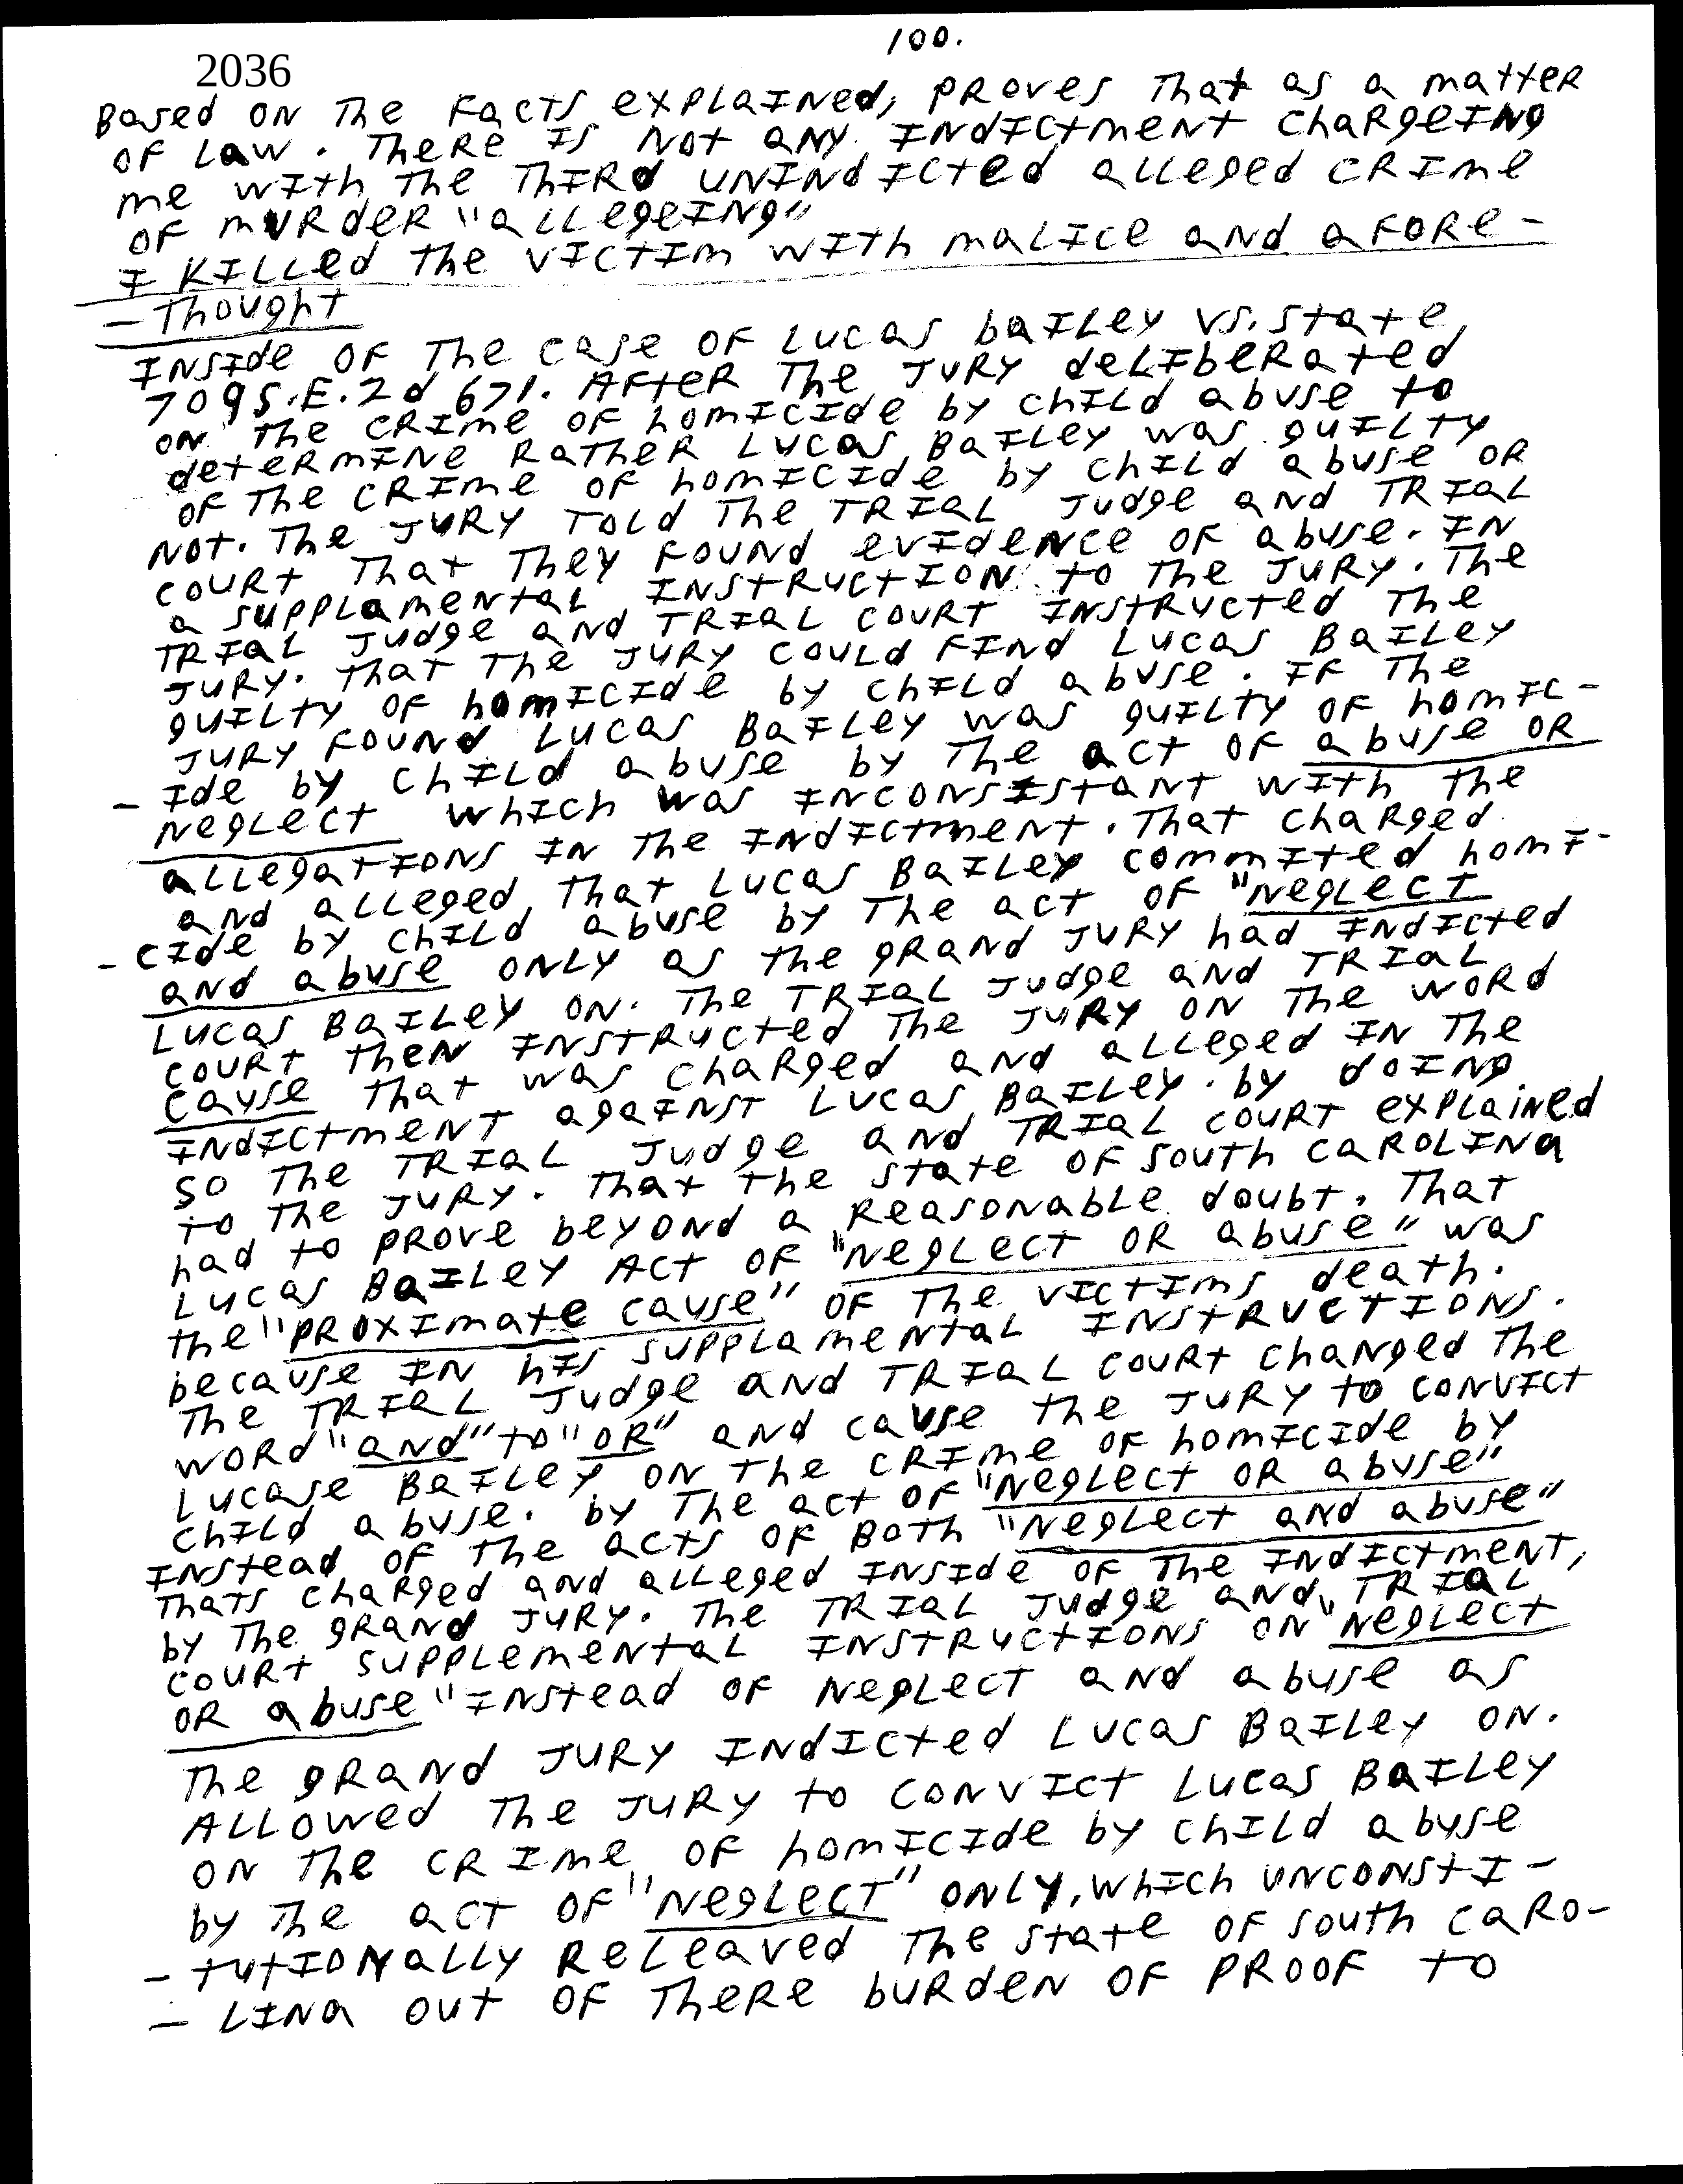 100.
2036
Based on the facts explained, proves that as a matter
of law. There is not any indictment chargeing
me with the third unindicted alleged crime
of murder "allegeing"
I killed the victim with malice and afore-
- thought
Inside of the case of Lucas Bailey vs. State,
709 S.E.2d 671. After the jury deliberated
on the crime of homicide by child abuse to
determine rather Lucas Bailey was guilty
of the crime of homicide by child abuse or
not. The jury told the trial judge and trial
court that they found evidence of abuse. In
a supplamental instruction to the jury. The
trial judge and trial court instructed the
jury. That the jury could find Lucas Bailey
guilty of homicide by child abuse. If the
jury found Lucas Bailey was guilty of homic-
- ide by child abuse by the act of abuse or
neglect which was inconsistant with the
allegations in the indictment. That charged
and alleged that Lucas Bailey commited homi-
- cide by child abuse by the act of "neglect
and abuse only as the grand jury had indicted
Lucas Bailey on. The trial judge and trial
court then instructed the jury on the word
cause that was charged and alleged in the
indictment against Lucas Bailey. by doing
so the trial judge and trial court explained
to the jury. That the state of South Carolina
had to prove beyond a reasonable doubt. That
Lucas Bailey act of "neglect or abuse" was
the "proximate cause" of the victims death.
because in his supplamental instructions.
The trial judge and trial court changed the
word "and" to "or" and cause the jury to convict
Lucase Bailey on the crime of homicide by
child abuse. by the act of "neglect or abuse"
instead of the acts of both "neglect and abuse"
thats charged and alleged inside of the indictment,
by the grand jury. The trial judge and trial
court supplemental instructions on "neglect
or abuse" instead of neglect and abuse as
the grand jury indicted Lucas Bailey on.
Allowed the jury to convict Lucas Bailey
on the crime of homicide by child abuse
by the act of "neglect" only, which unconsti-
- tutionally releaved the state of South Caro-
- lina out of there burden of proof to